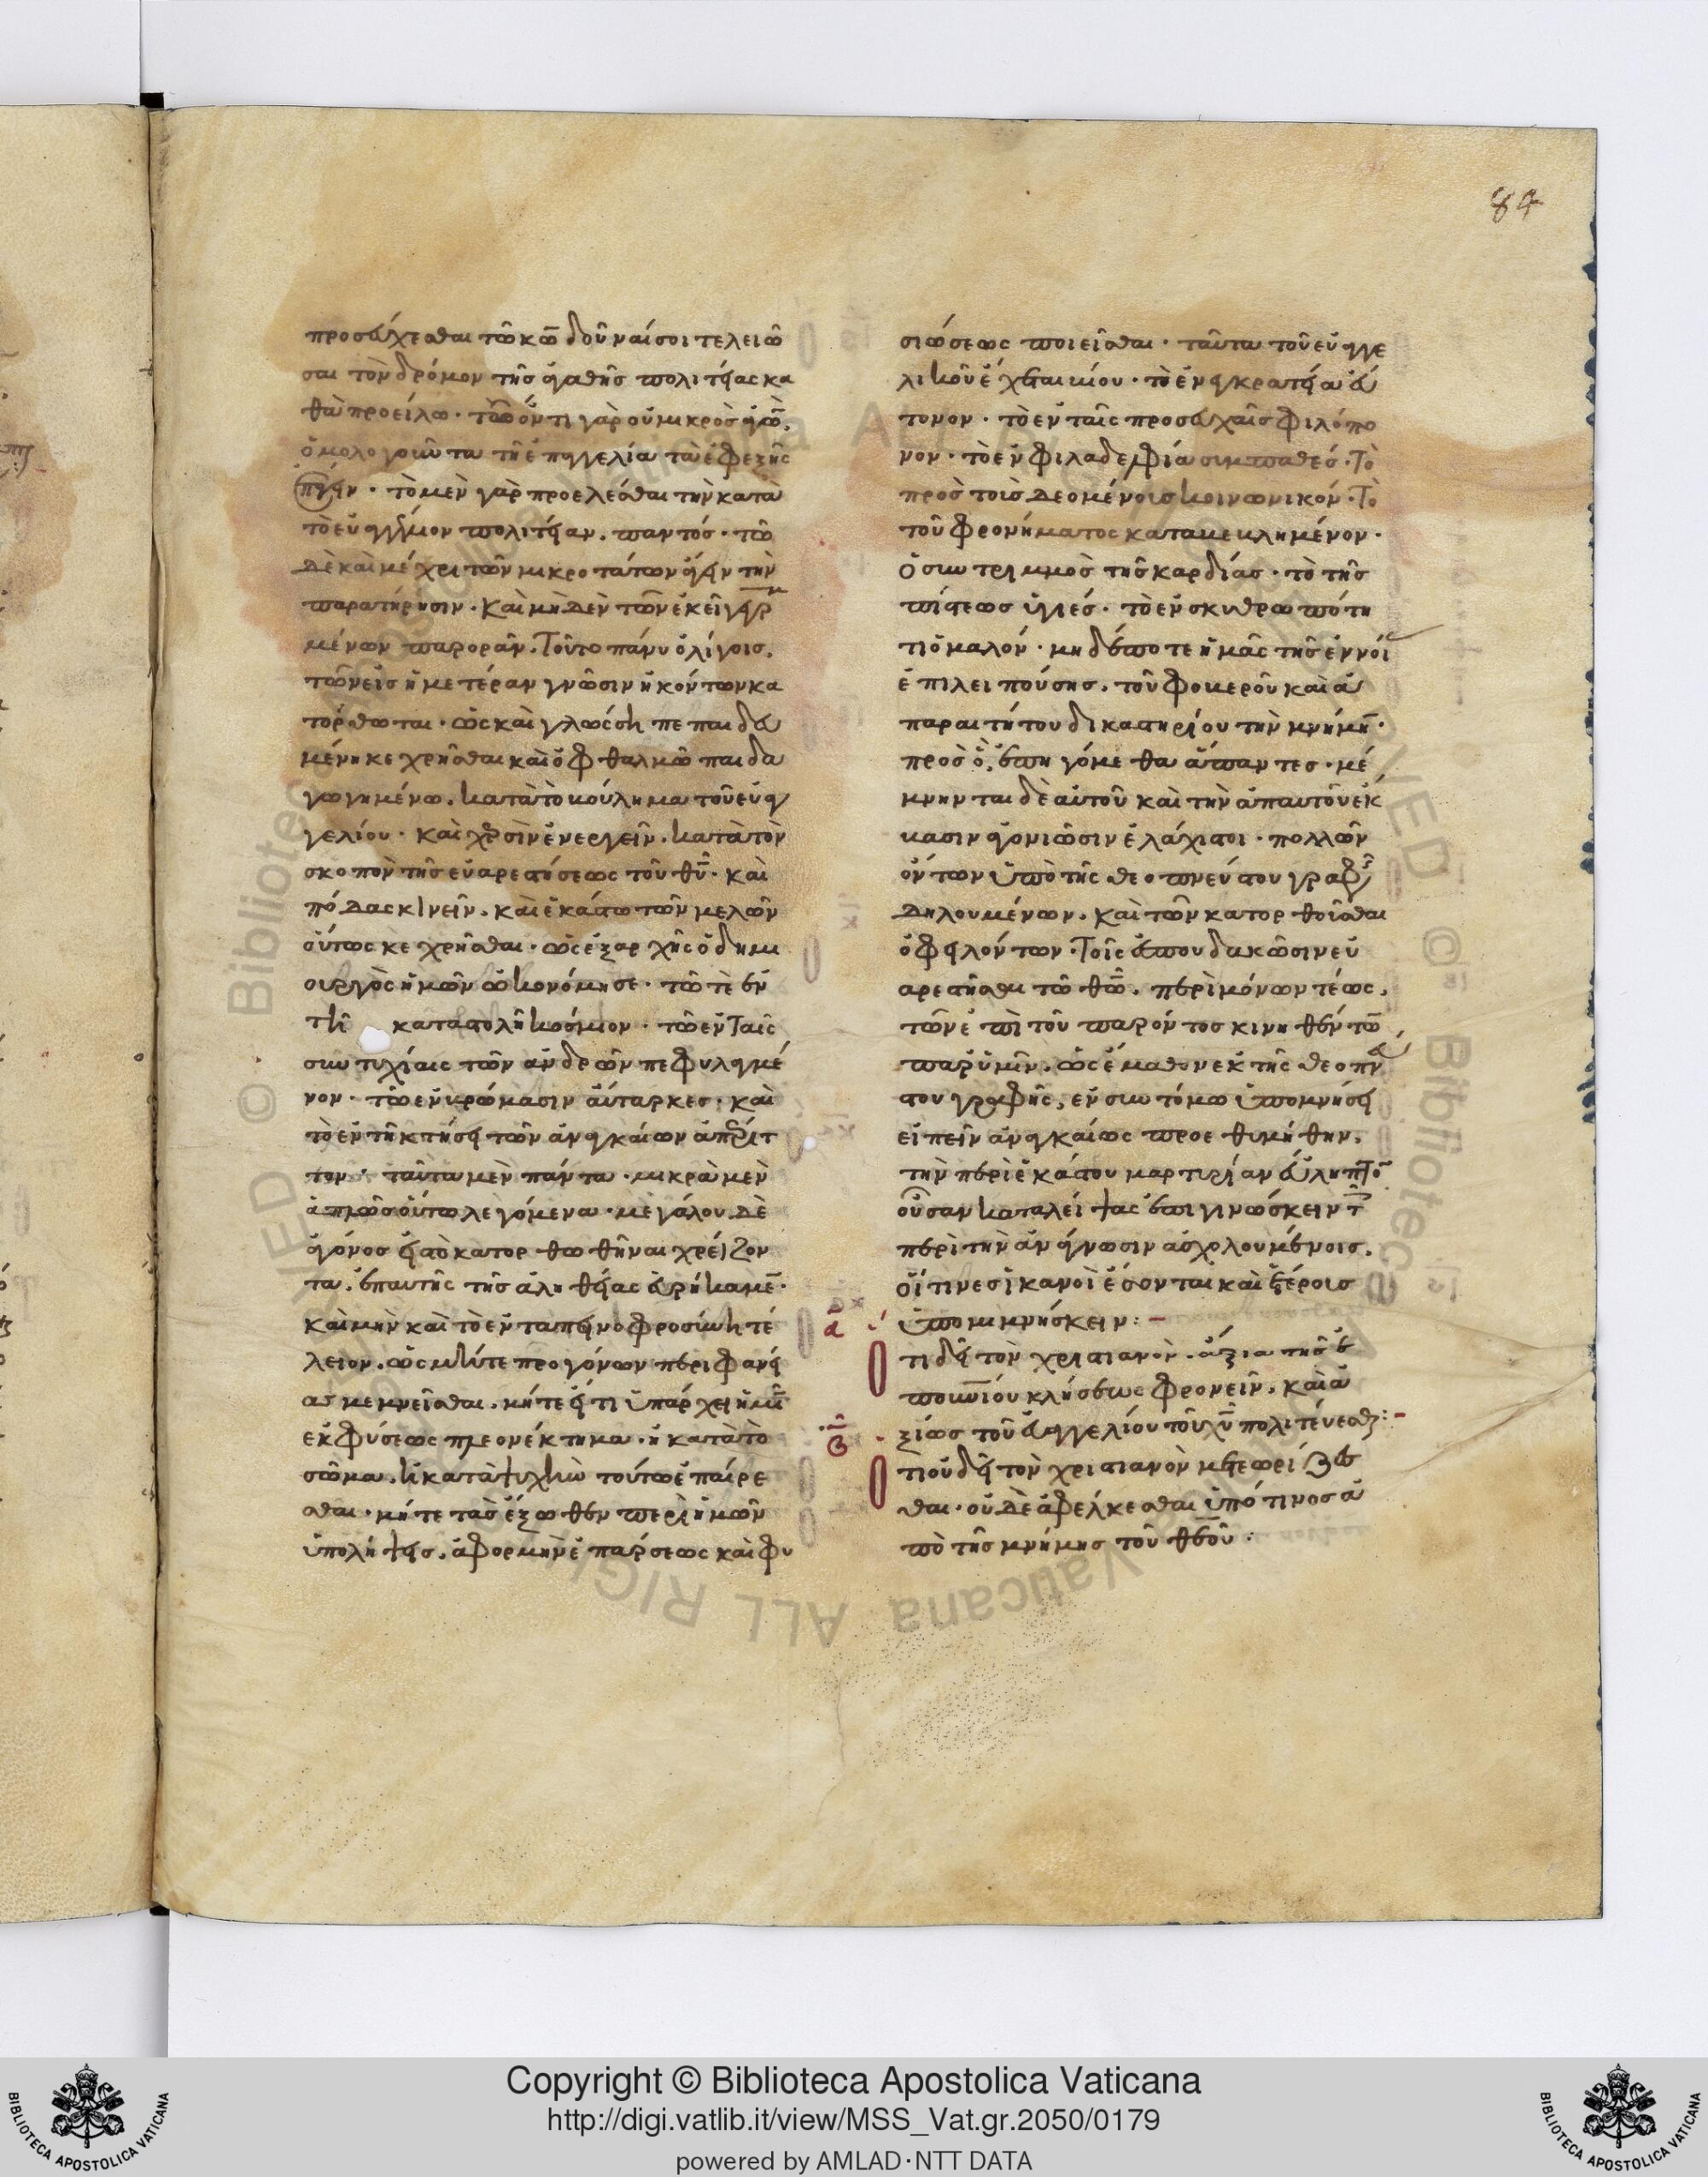 84
προσεύχεσθαι τῶ κῶ δοῦναί σοι τελειῶ
σαι τὸν δρόμον τῆς ἀγαθῆς πολιτείας κα
θὰ προείλω. τῶ ὄντι γὰρ οὐ μικρὸς ἀγών,
ὁμολογοῦντα τῆ ἐπαγγελία τὰ ἐφεξῆς
τὸ μὲν γὰρ προελέσθαι τὴν κατὰ
τὸ εὐαγγέλιον πολιτείαν, παντός· τῶ
δὲ καὶ μέχρι τῶν μικροτάτων ἄγειν τὴν
παρατήρησιν. καὶ μηδὲν τῶν ἐκεῖ γεγρ
μένων παρορᾶν, τοῦτο πάνυ ὀλίγοις,
τῶν εἰς ἡμετέραν γνῶσιν ἡκόντων κα
τόρθωται. ὡς καὶ γλώσση πεπαιδευ
μένη κεχρῆσθαι καὶ ὀφθαλμῶ παιδα
γωγημένω, κατὰ τὸ βούλημα τοῦ εὐαγ
γελίου. καὶ χερσὶν ἐνεργεῖν, κατὰ τὸν
σκοπὸν τῆς εὐαρεστήσεως τοῦ θυ. καὶ
πόδας κινεῖν, καὶ ἑκάστω τῶν μελῶν
οὕτως κεχρῆσθαι. ὡς ἐξαρχῆς ὁ δημι
ουργὸς ἡμῶν ὠκονόμησε. τῶ τὲ ἐν
τῆ καταστολῆ κόσμιον. τῶ ἐν ταῖς
συντυχίαις τῶν ἀνδρῶν πεφυλαγμέ
νον. τῶ ἐν βρώμασιν αὔταρκες. καὶ
τὸ ἐν τῆ κτήσει τῶν ἀναγκαίων ἀπέριτ
τον· ταῦτα μὲν πάντα. μικρὰ μὲν
ἁπλῶς οὕτω λεγόμενα. μεγάλου δὲ
ἀγῶνος εἰς τὸ κατορθωθῆναι χρείζον
τα. ἐπ αὐτῆς τῆς ἀληθείας εὑρήκαμεν.
καὶ μὴν καὶ τὸ ἐν ταπεινοφροσύνη τέ
λειον. ὡς μήτε προγόνων περιφανεί
ας μεμνεῖσθαι. μήτε εἴ τι ὑπάρχει ἡμῖν
ἐκ φύσεως πλεονέκτημα. ἢ κατὰ τὸ
σῶμα. ἢ κατὰ ψυχὴν τούτω ἐπαίρε
σθαι. μήτε τὰς ἔξωθεν περὶ ἡμῶν
ὑπολήψεις, ἀφορμὴν ἐπάρσεως καὶ φυ
σιώσεως ποιεῖσθαι. ταῦτα τοῦ εὐαγγε
λικοῦ ἔχεται βίου. τὸ ἐν ἐγκρατεία εὔ
τονον. τὸ ἐν ταῖς προσευχαῖς φιλόπο
νον. τὸ ἐν φιλαδελφία συμπαθές. Τὸ
πρὸς τοὺς δεομένους κοινωνικόν. Τὸ
τοῦ φρονήματος καταβεβλημένον.
ὁ συντριμμὸς τῆς καρδίας. τὸ τῆς
πίστεως ὑγιές. τὸ ἐν σκυθρωπότη
τι ὁμαλόν. μηδέποτε ἡμᾶς τῆς ἐννοί
ἐπιλειπούσης. τοῦ φοβεροῦ καὶ ἀ
παραιτήτου δικαστηρίου τὴν μνήμην.
πρὸς ὃ ἐπηγόμεθα ἅπαντες. μέ
μνηνται δὲ αὐτοῦ καὶ τὴν ἀπ αὐτοῦ ἔκ
βασιν ἀγονιῶσιν ἐλάχιστοι. πολλῶν
ὄντων ὑπὸ τῆς θεοπνεύστου γραφῆς
δηλουμένων. καὶ τῶν κατορθοῖσθαι
ὀφειλόντων. Τοῖς ἐσπουδακῶσιν εὐ
αρεστῆσαι τῶ θῶ, περὶ μόνων τέως,
τῶν ἐπὶ τοῦ παρόντος κινηθέντων
παρ ὑμῖν, ὡς ἔμαθον ἐκ τῆς θεοπνεύ
στου γραφῆς, ἐν συντόμω ὑπομνήσει
εἰπεῖν ἀναγκαίως προεθυμήθην,
τὴν περὶ ἑκάστου μαρτυρίαν εὔληπτον
οὖσαν καταλείψας ἐπιγινώσκειν τοῖς
περὶ τὴν ἀνάγνωσιν ἀσχολουμένοις,
οἵτινες ἱκανοὶ ἔσονται καὶ ἑτέροις
ὑπομιμνήσκειν:–
ᾱ τι δεῖ τὸν χριστιανὸν. ἄξια τῆς ἐ
πουνίου κλήσεως φρονεῖν, καὶ ἀ
ξίως τοῦ εὐαγγελίου τοῦ χυ πολιτεύεσθαι:–
β τι οὐ δεῖ τὸν χριστιανὸν μετεωρίζε
σθαι. οὐδὲ ἀφέλκεσθαι ὑπό τινος ἀ
πὸ τῆς μνήμης τοῦ θεοῦ:
Copyright © Biblioteca Apostolica Vaticana
http://digi.vatlib.it/view/MSS_Vat.gr.2050/0179
powered by AMLAD·NTT DATA
BIBLIOTECA APOSTOLICA VATICANA
BIBLIOTECA APOSTOLICA VATICANA